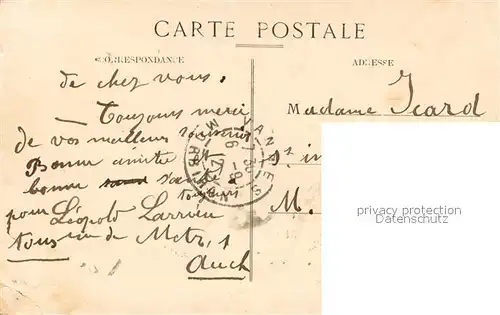 CARTE POSTALE
CORRESPONDANCE
ADRESSE
de chez vous.
— Toujours merci
de vos meilleurs souvenirs
Bonne amitié et
bonne santé
toujours
pour Léopold Larrieu
tous rue de Metz, 1
Auch
VANNES
MORBIHAN
Madame Icard
M.
privacy protection
MA-Shops.com